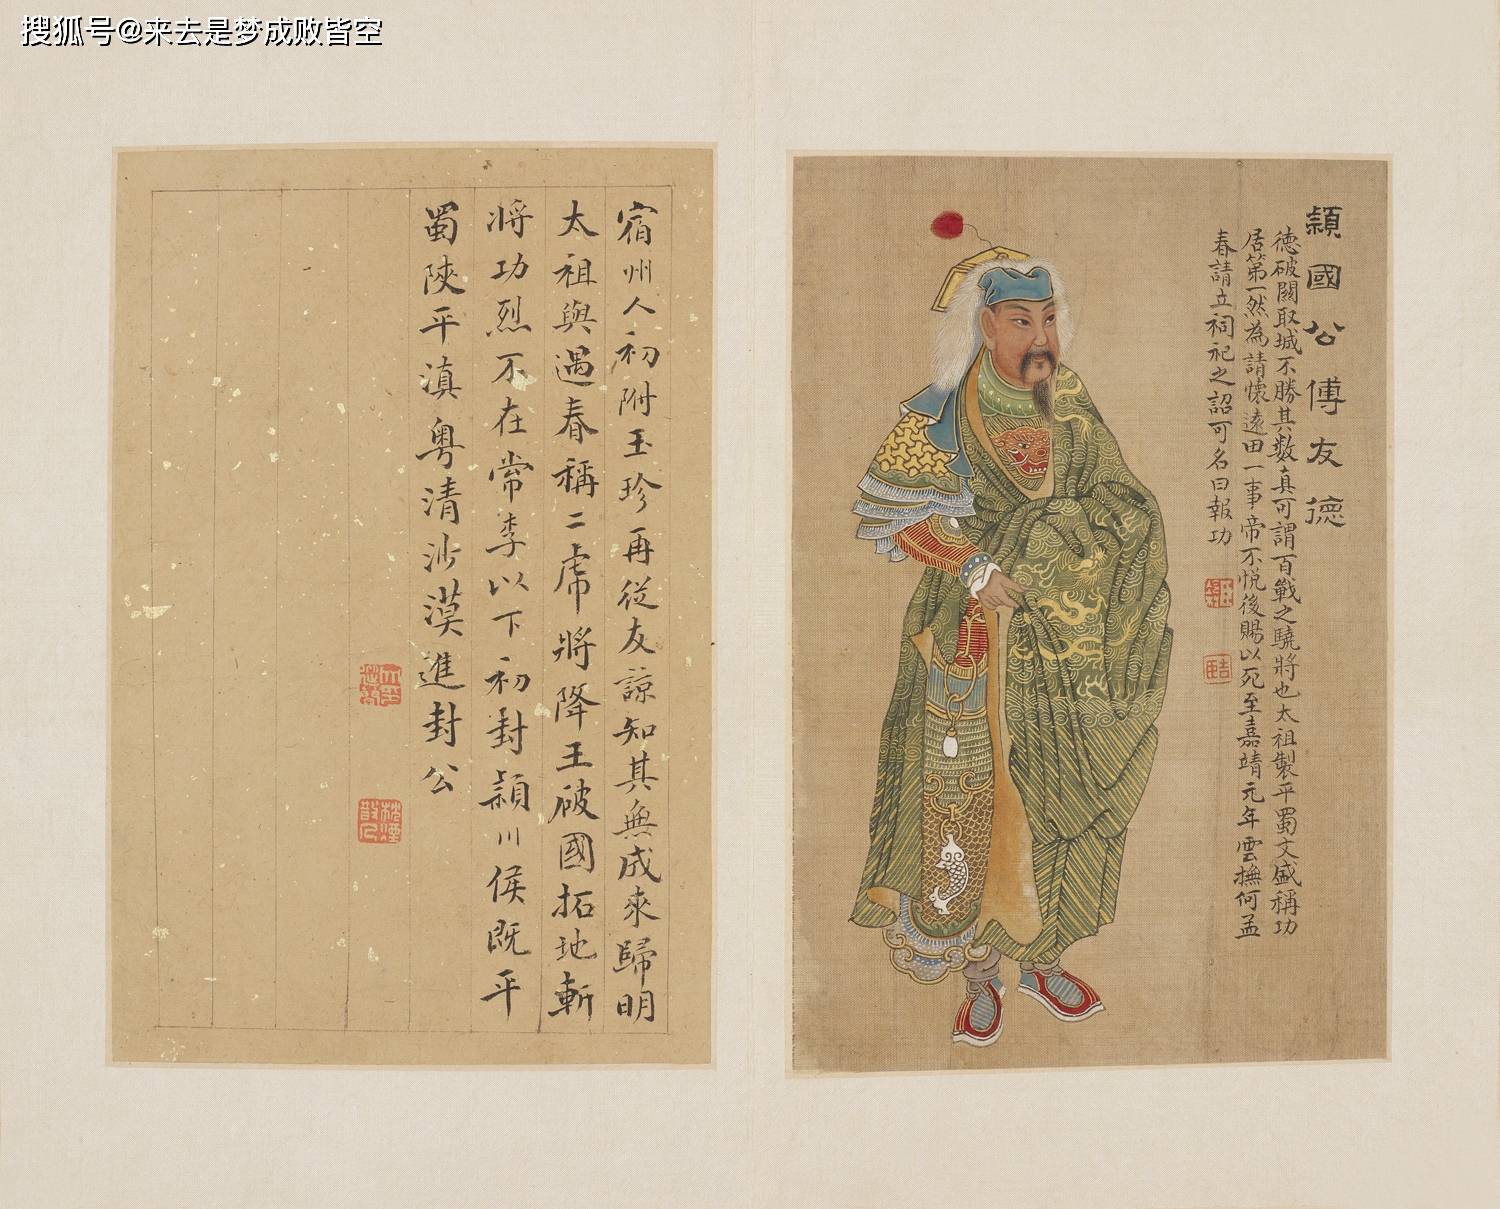 搜狐号@来去是梦成败皆空
穎國公傅友德
德破關取城不勝其數真可謂百戰之驍將也太祖製平蜀文盛稱功
居第一然為請懷遠田一事帝不悅後賜以死至嘉靖元年雲撫何孟
春請立祠祀之詔可名曰報功
宿州人初附玉珍再從友諒知其無成來歸明
太祖與遇春稱二虎將降王破國拓地斬
將功烈不在常李以下初封穎川侯既平
蜀陝平滇粵清沙漠進封公